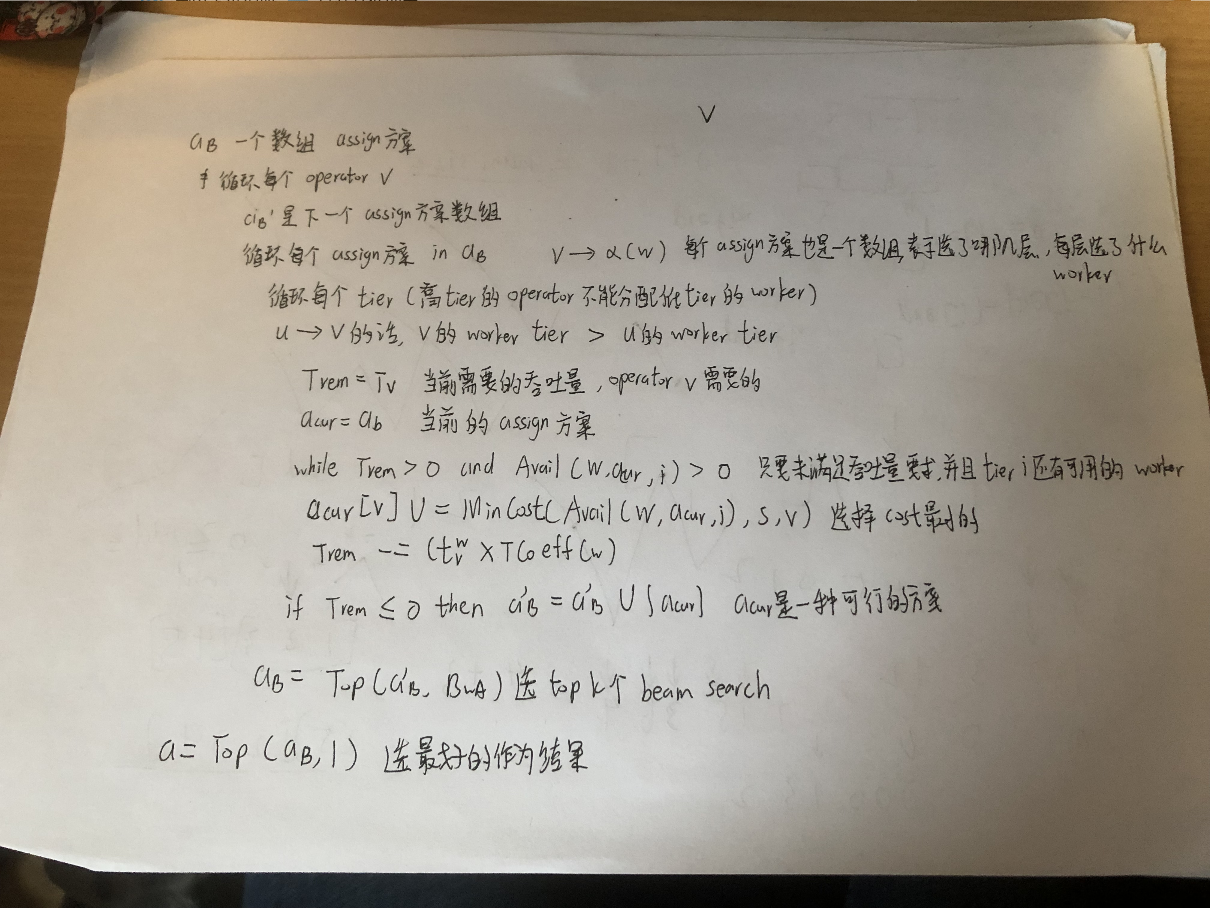 V
aB 一个数组 assign方案
循环每个 operator V
aB' 是下一个 assign方案数组
循环每个 assign方案 in aB V → α(w) 每个 assign方案也是一个数组,表示选了哪几层,每层选了什么
worker
循环每个 tier (高tier的operator不能分配低tier的worker)
u → V的话, V的 worker tier > u的 worker tier
Trem = Tv 当前需要的吞吐量, operator v 需要的
acur = ab 当前的 assign 方案
while Trem > 0 and Avail (W,acur,i) > 0 只要未满足吞吐量要求,并且 tier i 还有可用的 worker
acur[v] U = MinCost(Avail(W, acur,i), S, V) 选择 cost最小的
Trem -= (t_v^w × TCoeff(w)
if Trem ≤ 0 then a'B = a'B U {acur} acur是一种可行的方案
aB = Top(a'B, BWA) 选 top k个 beam search
a = Top (aB, 1) 选最好的作为结果